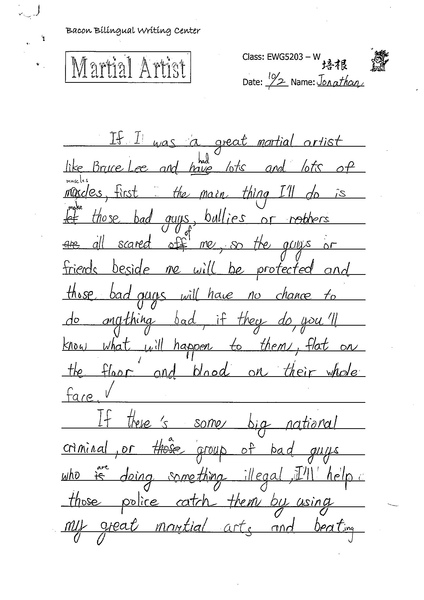 Bacon Bilingual Writing Center
Martial Artist
Class: EWG5203 – W
培根
Date: 10/2 Name: Jonathan
If I was a great martial artist
had
like Bruce Lee and have lots and lots of
muscles
muscles, first the main thing I'll do is
make
let those bad guys, bullies or robbers
of
are all scared off me, so the guys or
friends beside me will be protected and
those bad guys will have no chance to
do anything bad, if they do, you'll
know what will happen to them, flat on
the floor and blood on their whole
face. ✓
If there's some big national
a
criminal, or those group of bad guys
are
who is doing something illegal, I'll help
those police catch them by using
my great martial arts and beating